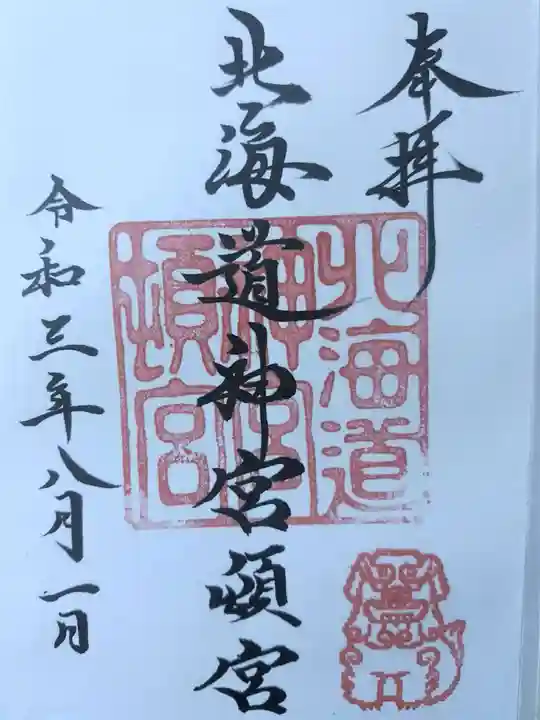 奉拝
北海道神宮頓宮
北海道
神宮
頓宮
令和三年八月一日